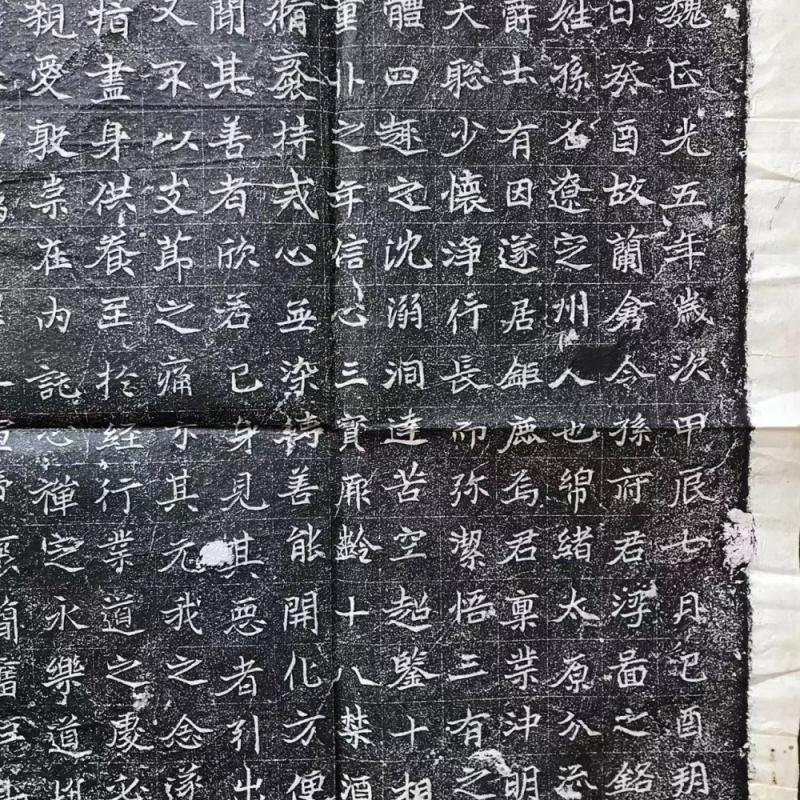 魏正光五年歲次甲辰七月己酉朔
日癸酉故蘭倉令孫府君浮啚之銘
姓孫名遼定州人也綿緒太原分流
爵士有因遂居鉅鹿焉君稟業沖明
天聰少懷淨行長而弥潔悟三有之
體四趣之沈溺洞達苦空超鑒十相
重丱之年信心三寶厥齡十八禁酒
脩齋持戒心無染縛善能開化方便
聞其善者欣若己身見其惡者引出
又不以支節之痛示其无我之念遂
指盡身供養至於經行業道之處必
親愛敬崇在内託心禪定永樂道